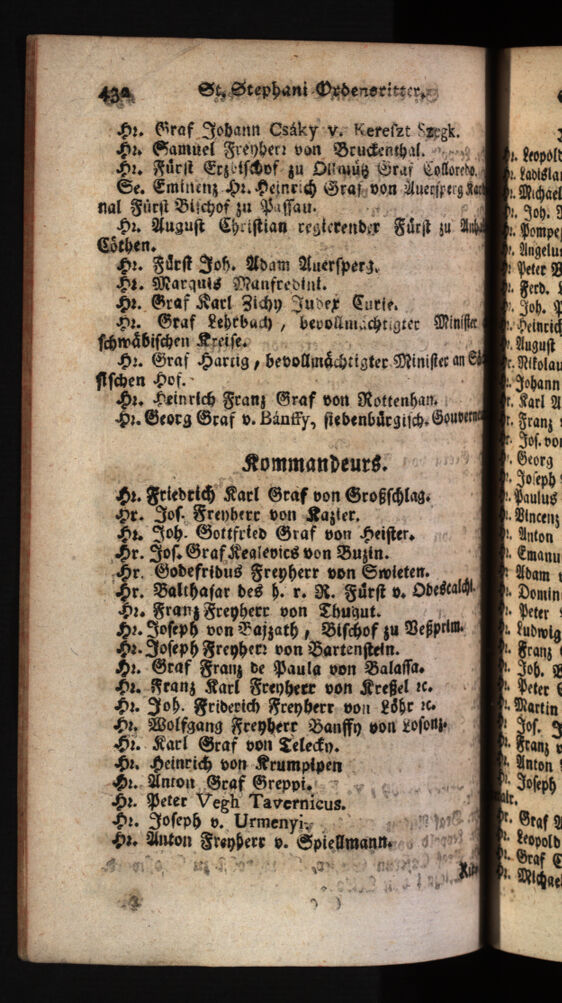 432 St. Stephani Ordensritter.
Hr. Graf Johann Csáky v. Kereszt Szegk.
Hr. Samuel Freyherr von Bruckenthal.
Hr. Fürst Erzbischof zu Ollmütz Graf Colloredo.
Se. Eminenz Hr. Heinrich Graf von Auersperg Kar
nal Fürst Bischof zu Passau.
Hr. August Christian regierender Fürst zu Anha
Cöthen.
Hr. Fürst Joh. Adam Auersperg.
Hr. Marquis Manfredini.
Hr. Graf Karl Zichy Judex Curie.
Hr. Graf Lehrbach, bevollmächtigter Minister
schwäbischen Kreise.
Hr. Graf Hartig, bevollmächtigter Minister an Sä
sischen Hof.
Hr. Heinrich Franz Graf von Rottenhan.
Hr. Georg Graf v. Bánffy, siebenbürgisch. Gouverne
Kommandeurs.
Hr. Friedrich Karl Graf von Großschlag.
Hr. Jos. Freyherr von Kazier.
Hr. Joh. Gottfried Graf von Heister.
Hr. Jos. Graf Kealevics von Buzin.
Hr. Godefridus Freyherr von Swieten.
Hr. Balthasar des h. r. R. Fürst v. Odescalchi.
Hr. Franz Freyherr von Thugut.
Hr. Joseph von Bajzath, Bischof zu Veßprim.
Hr. Joseph Freyherr von Bartenstein.
Hr. Graf Franz de Paula von Balassa.
Hr. Franz Karl Freyherr von Kreßel ꝛc.
Hr. Joh. Friderich Freyherr von Löhr ꝛc.
Hr. Wolfgang Freyherr Banffy von Losonz.
Hr. Karl Graf von Telecky.
Hr. Heinrich von Krumpipen
Hr. Anton Graf Greppi.
Hr. Peter Vegh Tavernicus.
Hr. Joseph v. Urmenyi.
Hr. Anton Freyherr v. Spiellmann.
Leopold
Ladisla
Michael
Joh.
Pompe
Angelu
Peter
Ferd.
Joh.
Heinrich
August
Nikolau
Johann
Karl
Franz
Jos. vo
Georg
Joseph
Paulus
Vincenz
Anton
Emanu
Adam
Domin
Peter
Ludwig
Franz
Joh.
Peter
Martin
Jos.
Franz
Anton
Joseph
Graf
Leopold
Graf
Michae